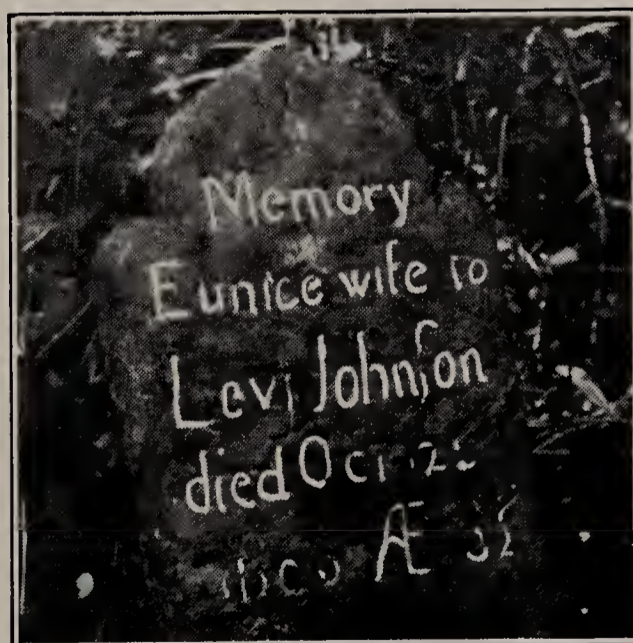 Memory
Eunice wife to
Levi Johnſon
died Oct
Æ